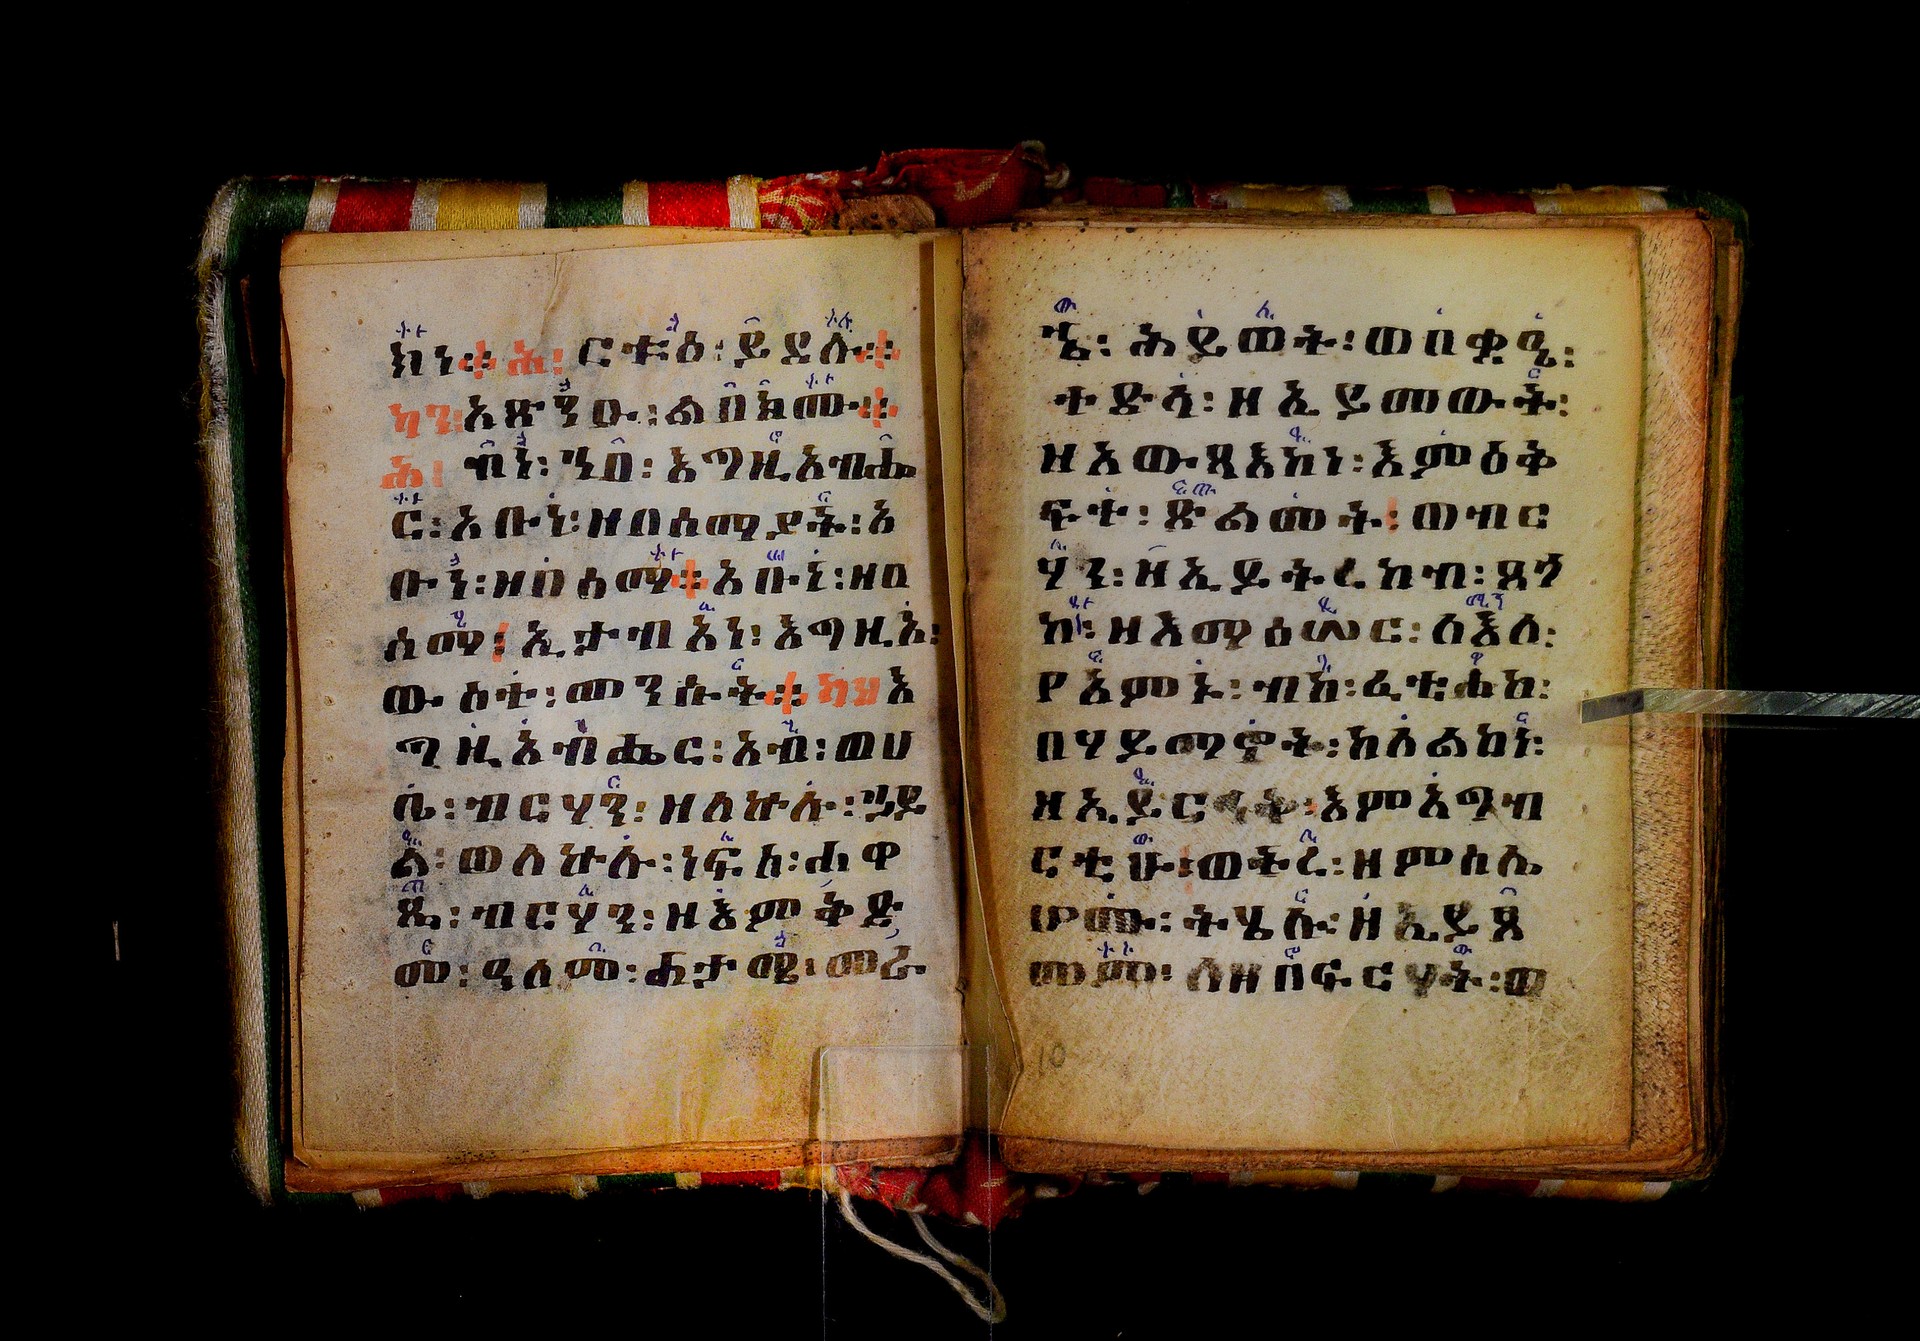 ክነ። ሕ፡ ርቱዕ፡ ይደሉ።
ካን፡ አጽንዑ፡ ልበክሙ።
ሕ፡ ብነ፡ ኀበ፡ እግዚአብሔ
ር፡ አቡነ፡ ዘበሰማያት፡ አ
ቡነ፡ ዘበሰማ። አቡነ፡ ዘበ
ሰማ፡ ኢታብአነ፡ እግዚአ፡
ውስተ፡ መንሱት። ካህ እ
ግዚአብሔር፡ አብ፡ ወሀ
ቤ፡ ብርሃን፡ ዘለኵሉ፡ ኀይ
ል፡ ወለኵሉ፡ ነፍስ፡ ሐዋ
ጼ፡ ብርሃን፡ ዘእምቅድ
መ፡ ዓለም፡ ሐታሚ፡ መራ
ኄ፡ ሕይወት፡ ወበቋዒ፡
ተድላ፡ ዘኢይመውት፡
ዘአውጻእከነ፡ እምዕቅ
ፍተ፡ ጽልመት፡ ወብር
ሃን፡ ዘኢይትረከብ፡ ጸጎ
ከ፡ ዘእማሰሠር፡ ለእለ፡
የአምኑ፡ ብከ፡ ፈቲሐከ፡
በሃይማኖት፡ ከለልከነ፡
ዘኢይርኅቅ፡ እምአግብ
ርቲሁ፡ ወትረ፡ ዘምስሌ
ሆሙ፡ ትሄሉ፡ ዘኢይጸ
መም፡ ለዘበፍርሃት፡ ወ
10